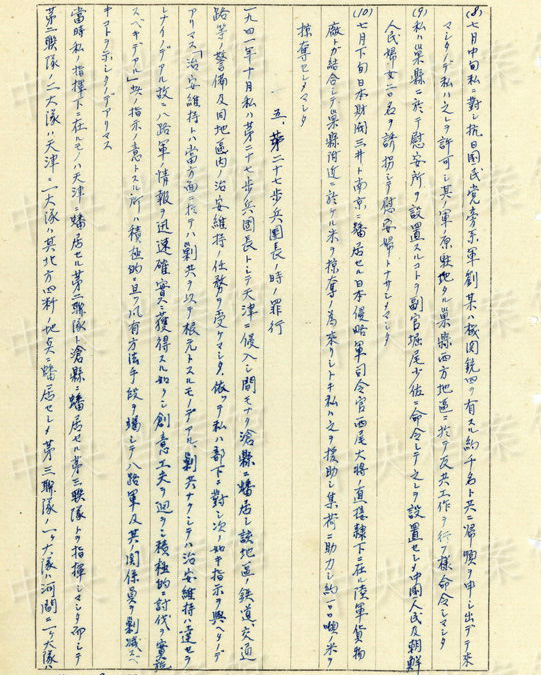 (8)七月中旬私ニ対シ抗日国民党旁系軍劉某ハ機関銃四ヲ有スル約千名ト共ニ帰順ヲ申シ出デテ来
マシタノデ私ハ之レヲ許可シ其ノ軍ノ原駐地タル巣縣西方地區ニ於テ反共工作ヲ行フ様命令シマシタ
(9)私ハ巣縣ニ於テ慰安所ヲ設置スルコトヲ副官堀尾少佐ニ命令シテ之レヲ設置セシメ中国人民及朝鮮
人民婦女二〇名ヲ誘拐シテ慰安婦トナサシメマシタ
(10)七月下旬日本財閥三井ト南京ニ蟠居セル日本侵略軍司令官西尾大将ノ直接隷下ニ在ル陸軍貨物
廠トガ結合シテ巣縣附近ニ於ケル米ヲ掠奪ノ為来リシトキ私ハ之ヲ援助シ集荷ニ助力シ約 噸ノ米ヲ
掠奪セシメマシタ
五、第二十七歩兵團長ノ時ノ罪行
一九四一年十月私ハ第二十七歩兵團長トシテ天津ニ侵入シ間モナク滄縣ニ蟠居シ該地區ノ鉄道、交通
路等ノ警備及同地區内ノ治安維持ノ任務ヲ受ケマシタ、依ッテ私ハ部下ニ対シ次ノ如キ指示ヲ與ヘタノデ
アリマス「治安維持ハ当方面ニ於テハ剿共ヲ以テ根元トスルモノデアル、剿共ナクシテハ治安維持ハ達セラ
レナイノデアル故ニ八路軍ノ情報ヲ迅速確実ニ獲得スル如クシ創意工夫ヲ廻ラシ積極的ニ討伐ヲ実施
スベキデアル」此ノ指示ノ意トスル所ハ積極的且ツ凡有方法手段ヲ竭シテ八路軍及其ノ関係員ヲ剿滅スベ
キコトヲ示シタノデアリマス
当時私ノ指揮下ニ在ルモノハ天津ニ蟠居セル第二聯隊ト滄縣ニ蟠居セル第三聯隊トヲ指揮シマシタ而シテ
第二聯隊ノ二大隊ハ天津ニ一大隊ハ其北方四粁ノ地点ニ蟠居セシメ第三聯隊ノ一ケ大隊ハ河間ニ一ケ大隊ハ